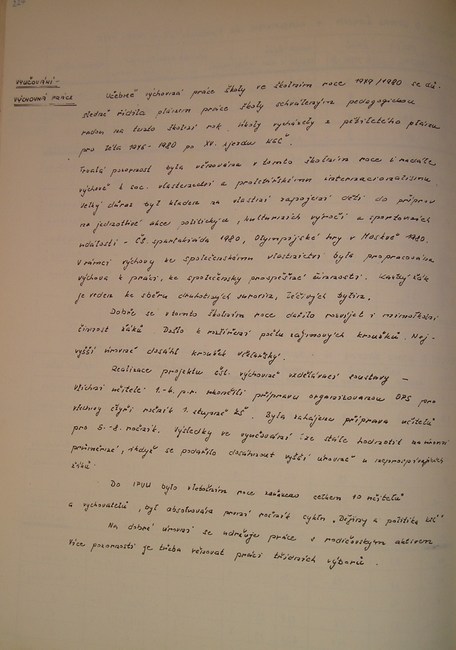 VYUČOVÁNÍ -
VÝCHOVNÁ PRÁCE
Učebně výchovná práce školy ve školním roce 1979/1980 se dů-
sledně řídila plánem práce školy schváleným pedagogickou
radou na tento školní rok. Úkoly vycházely z pětiletého plánu
pro léta 1976-1980 po XV. sjezdu KSČ.
Trvalá pozornost byla věnována v tomto školním roce i nadále
výchově k soc. vlastenectví a proletářskému internacionalismu.
Velký důraz byl kladen na vlastní zapojení dětí do příprav
na jednotlivé akce politických, kulturních výročí a sportovních
událostí - Čs. spartakiáda 1980, Olympijské hry v Moskvě 1980.
V rámci výchovy ke společenskému vlastnictví byla propracována
výchova k práci, ke společensky prospěšné činnosti. Každý žák
je veden ke sběru druhotných surovin, léčivých bylin.
Dobře se v tomto školním roce dařilo rozvíjet i mimoškolní
činnost žáků. Došlo k rozšíření počtu zájmových kroužků. Nej-
vyšší úrovně dosáhl kroužek včelařský.
Realizace projektu čsl. výchovně vzdělávací soustavy -
všichni učitelé 1.-4. p.r. ukončili přípravu organizovanou OPS pro
všechny čtyři ročníky 1. stupně ZŠ. Byla zahájena příprava učitelů
pro 5.-8. ročník. Výsledky ve vyučování lze stále hodnotit
průměrné, i když se podařilo dosáhnout vyšší úrovně u neprospívajících
žáků.
Do IPVU bylo v loňském roce celkem 10 učitelů
a vychovatelů, byl absolvován první ročník cyklu "Dějiny a politika KSČ"
Na dobré úrovni se udržuje práce s rodičovským aktivem
Více pozornosti je třeba věnovat práci třídních výborů.